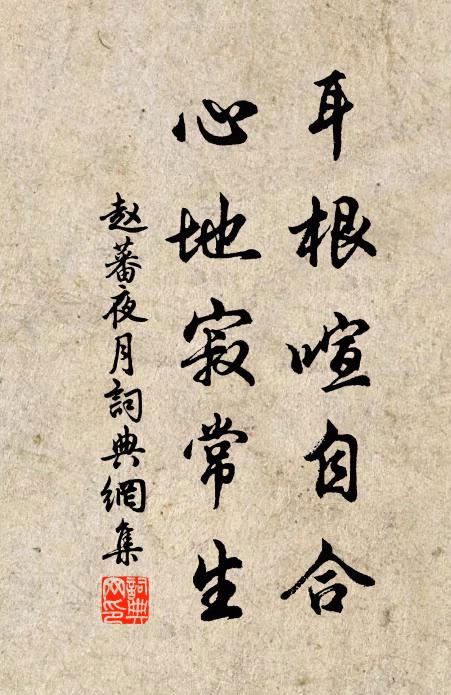 耳根喧自合
心地寂常生
赵蕃夜月詞典網集
詞典網印